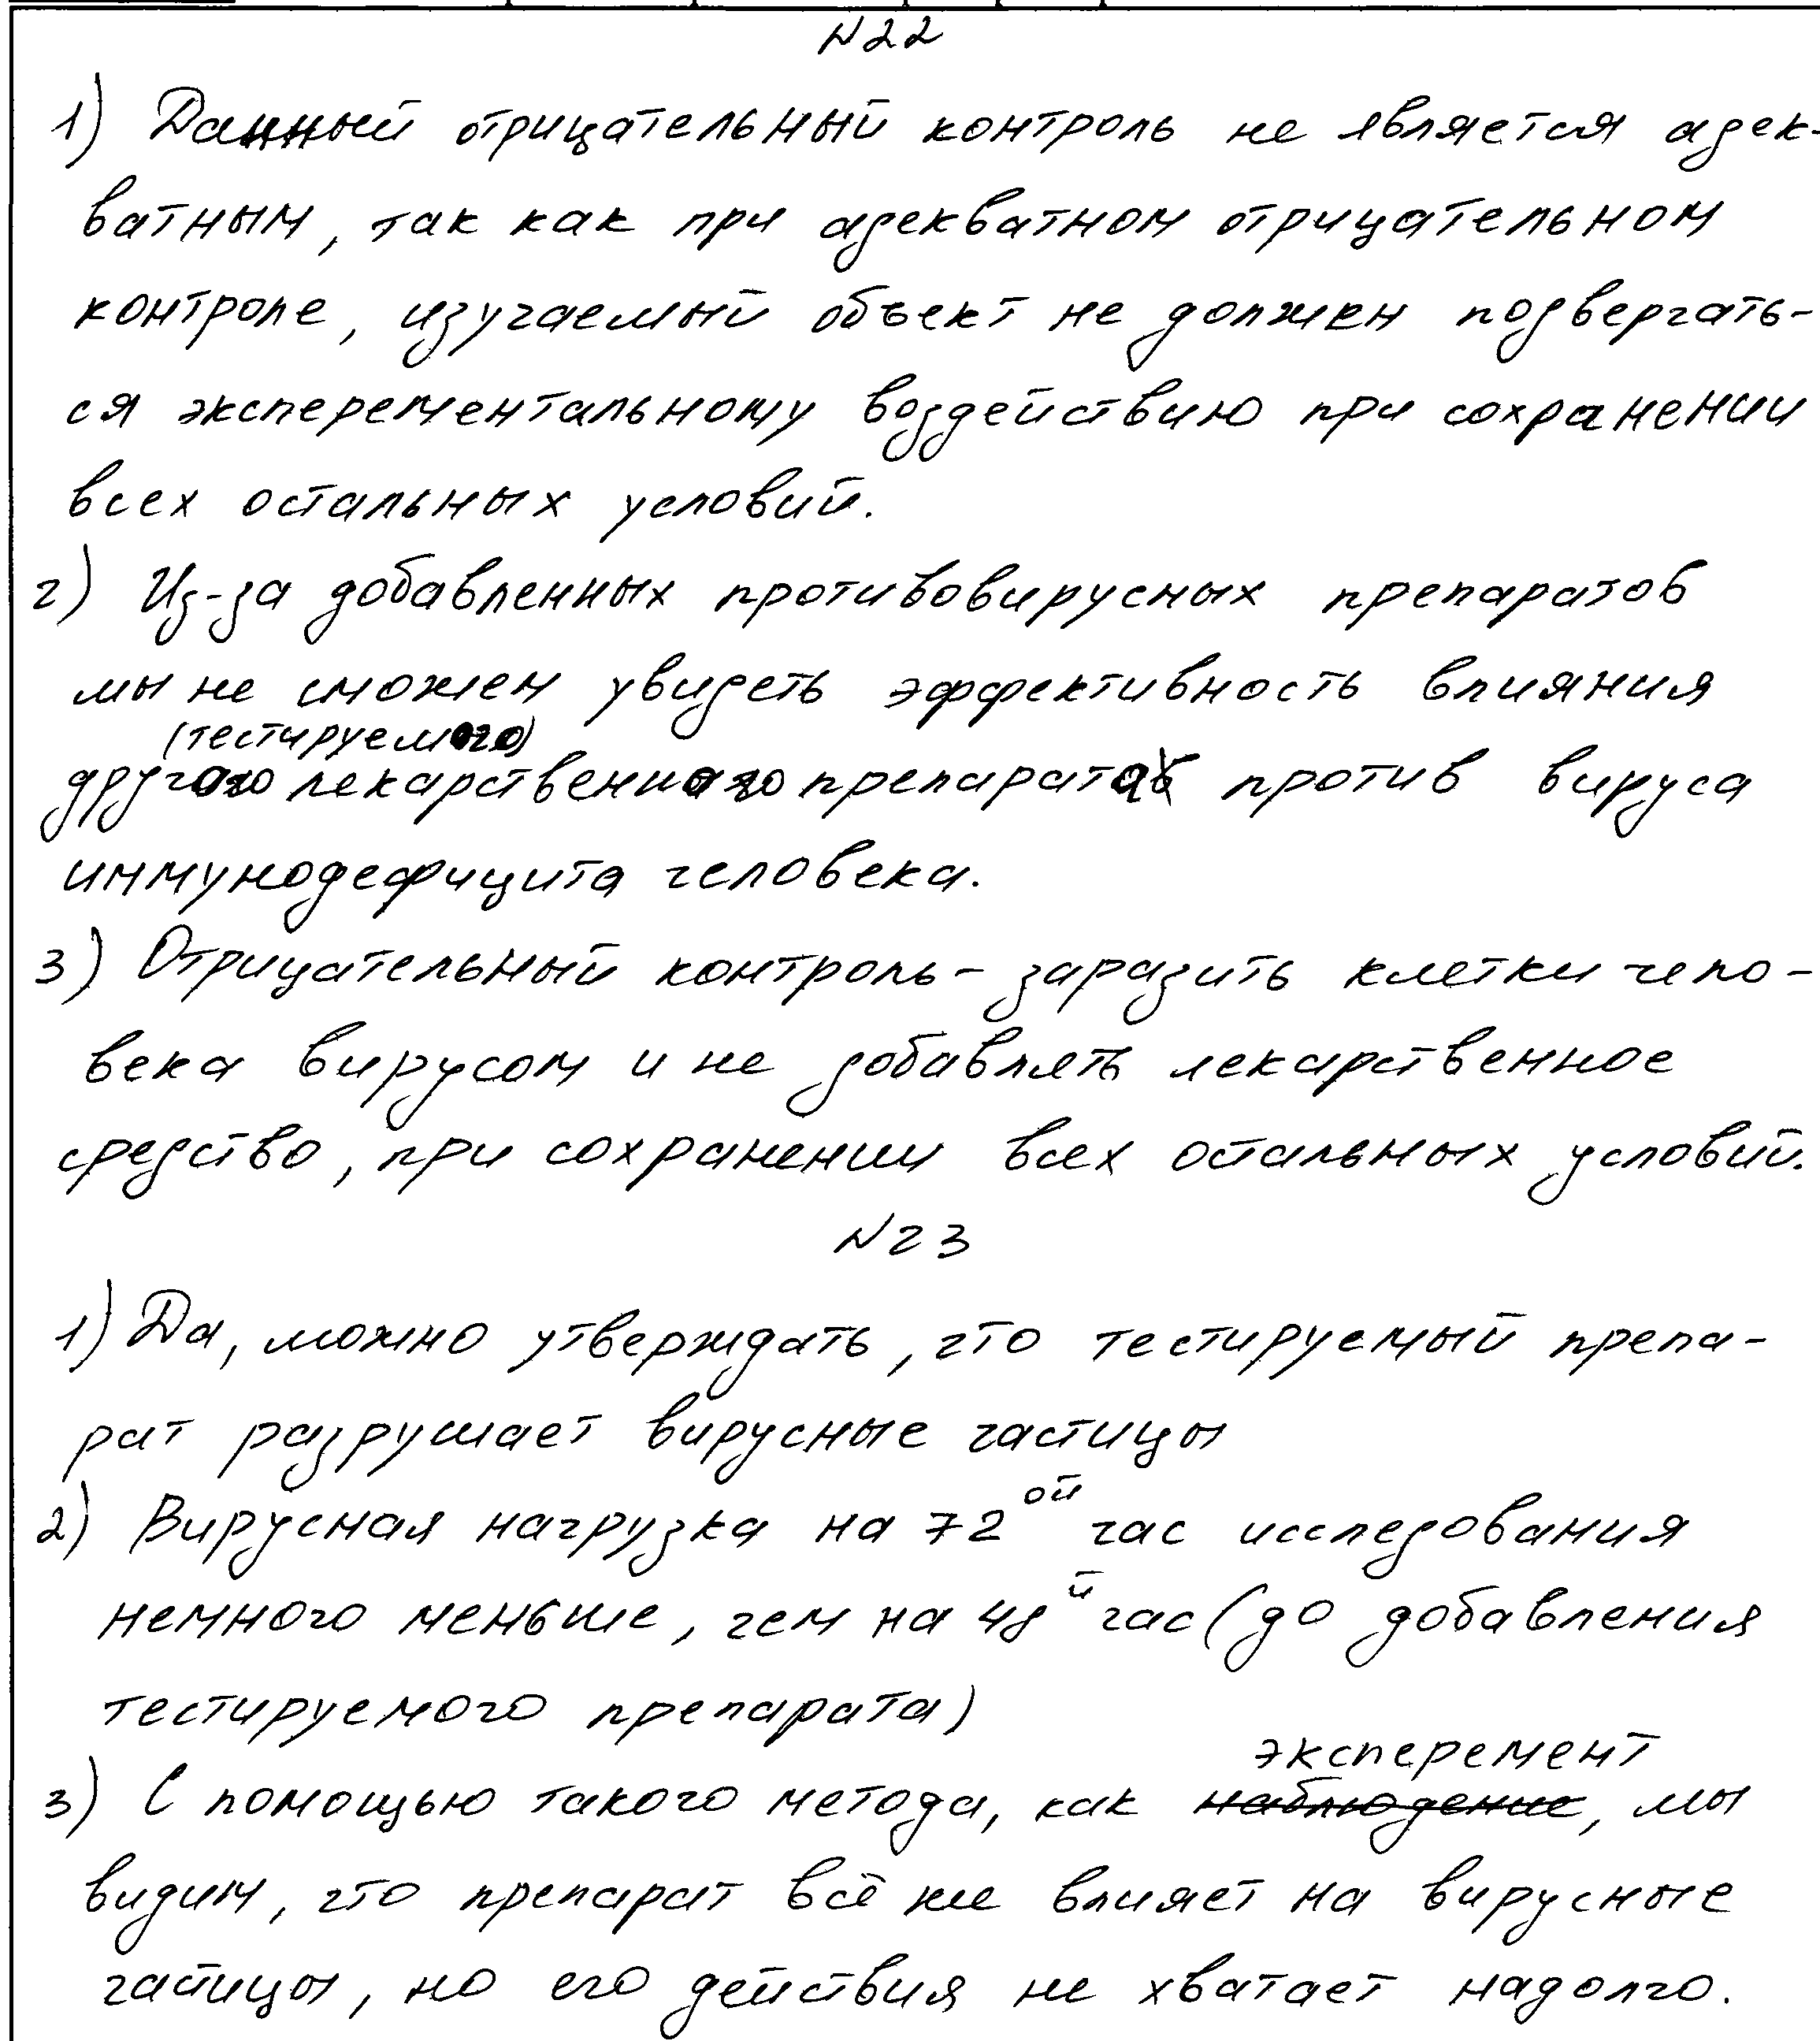 №22
1) Данный отрицательный контроль не является адек-
ватным, так как при адекватном отрицательном
контроле, изучаемый объект не должен подвергать-
ся эксперементальному воздействию при сохранении
всех остальных условий.
2) Из-за добавленных противовирусных препаратов
мы не сможем увидеть эффективность влияния
(тестируемого)
другого лекарственного препарата против вируса
иммунодефицита человека.
3) Отрицательный контроль- заразить клетки чело-
века вирусом и не добавлять лекарственное
средство, при сохранении всех остальных условий.
№23
1) Да, можно утверждать, что тестируемый препа-
рат разрушает вирусные частицы
2) Вирусная нагрузка на 72ой час исследования
немного меньше, чем на 48й час (до добавления
тестируемого препарата)
эксперемент
3) С помощью такого метода, как наблюдение, мы
видим, что препарат всё же влияет на вирусные
частицы, но его действия не хватает надолго.